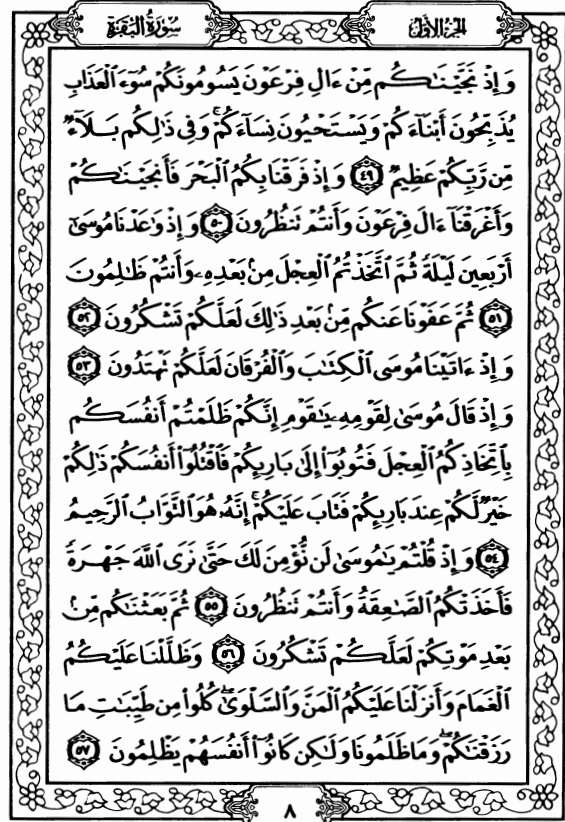 سُورَةُ البَقَرَةِ
الجُزءُ الأَوَّلُ
وَإِذْ نَجَّيْنَـٰكُم مِّنْ ءَالِ فِرْعَوْنَ يَسُومُونَكُمْ سُوٓءَ ٱلْعَذَابِ
يُذَبِّحُونَ أَبْنَآءَكُمْ وَيَسْتَحْيُونَ نِسَآءَكُمْ ۚ وَفِى ذَٰلِكُم بَلَآءٌ
مِّن رَّبِّكُمْ عَظِيمٌ ﴿٤٩﴾ وَإِذْ فَرَقْنَا بِكُمُ ٱلْبَحْرَ فَأَنجَيْنَـٰكُمْ
وَأَغْرَقْنَآ ءَالَ فِرْعَوْنَ وَأَنتُمْ تَنظُرُونَ ﴿٥٠﴾ وَإِذْ وَٰعَدْنَا مُوسَىٰٓ
أَرْبَعِينَ لَيْلَةً ثُمَّ ٱتَّخَذْتُمُ ٱلْعِجْلَ مِنۢ بَعْدِهِۦ وَأَنتُمْ ظَـٰلِمُونَ
﴿٥١﴾ ثُمَّ عَفَوْنَا عَنكُم مِّنۢ بَعْدِ ذَٰلِكَ لَعَلَّكُمْ تَشْكُرُونَ ﴿٥٢﴾
وَإِذْ ءَاتَيْنَا مُوسَى ٱلْكِتَـٰبَ وَٱلْفُرْقَانَ لَعَلَّكُمْ تَهْتَدُونَ ﴿٥٣﴾
وَإِذْ قَالَ مُوسَىٰ لِقَوْمِهِۦ يَـٰقَوْمِ إِنَّكُمْ ظَلَمْتُمْ أَنفُسَكُم
بِٱتِّخَاذِكُمُ ٱلْعِجْلَ فَتُوبُوٓا۟ إِلَىٰ بَارِئِكُمْ فَٱقْتُلُوٓا۟ أَنفُسَكُمْ ذَٰلِكُمْ
خَيْرٌ لَّكُمْ عِندَ بَارِئِكُمْ فَتَابَ عَلَيْكُمْ ۚ إِنَّهُۥ هُوَ ٱلتَّوَّابُ ٱلرَّحِيمُ
﴿٥٤﴾ وَإِذْ قُلْتُمْ يَـٰمُوسَىٰ لَن نُّؤْمِنَ لَكَ حَتَّىٰ نَرَى ٱللَّهَ جَهْرَةً
فَأَخَذَتْكُمُ ٱلصَّـٰعِقَةُ وَأَنتُمْ تَنظُرُونَ ﴿٥٥﴾ ثُمَّ بَعَثْنَـٰكُم مِّنۢ
بَعْدِ مَوْتِكُمْ لَعَلَّكُمْ تَشْكُرُونَ ﴿٥٦﴾ وَظَلَّلْنَا عَلَيْكُمُ
ٱلْغَمَامَ وَأَنزَلْنَا عَلَيْكُمُ ٱلْمَنَّ وَٱلسَّلْوَىٰ ۖ كُلُوا۟ مِن طَيِّبَـٰتِ مَا
رَزَقْنَـٰكُمْ ۖ وَمَا ظَلَمُونَا وَلَـٰكِن كَانُوٓا۟ أَنفُسَهُمْ يَظْلِمُونَ ﴿٥٧﴾
٨